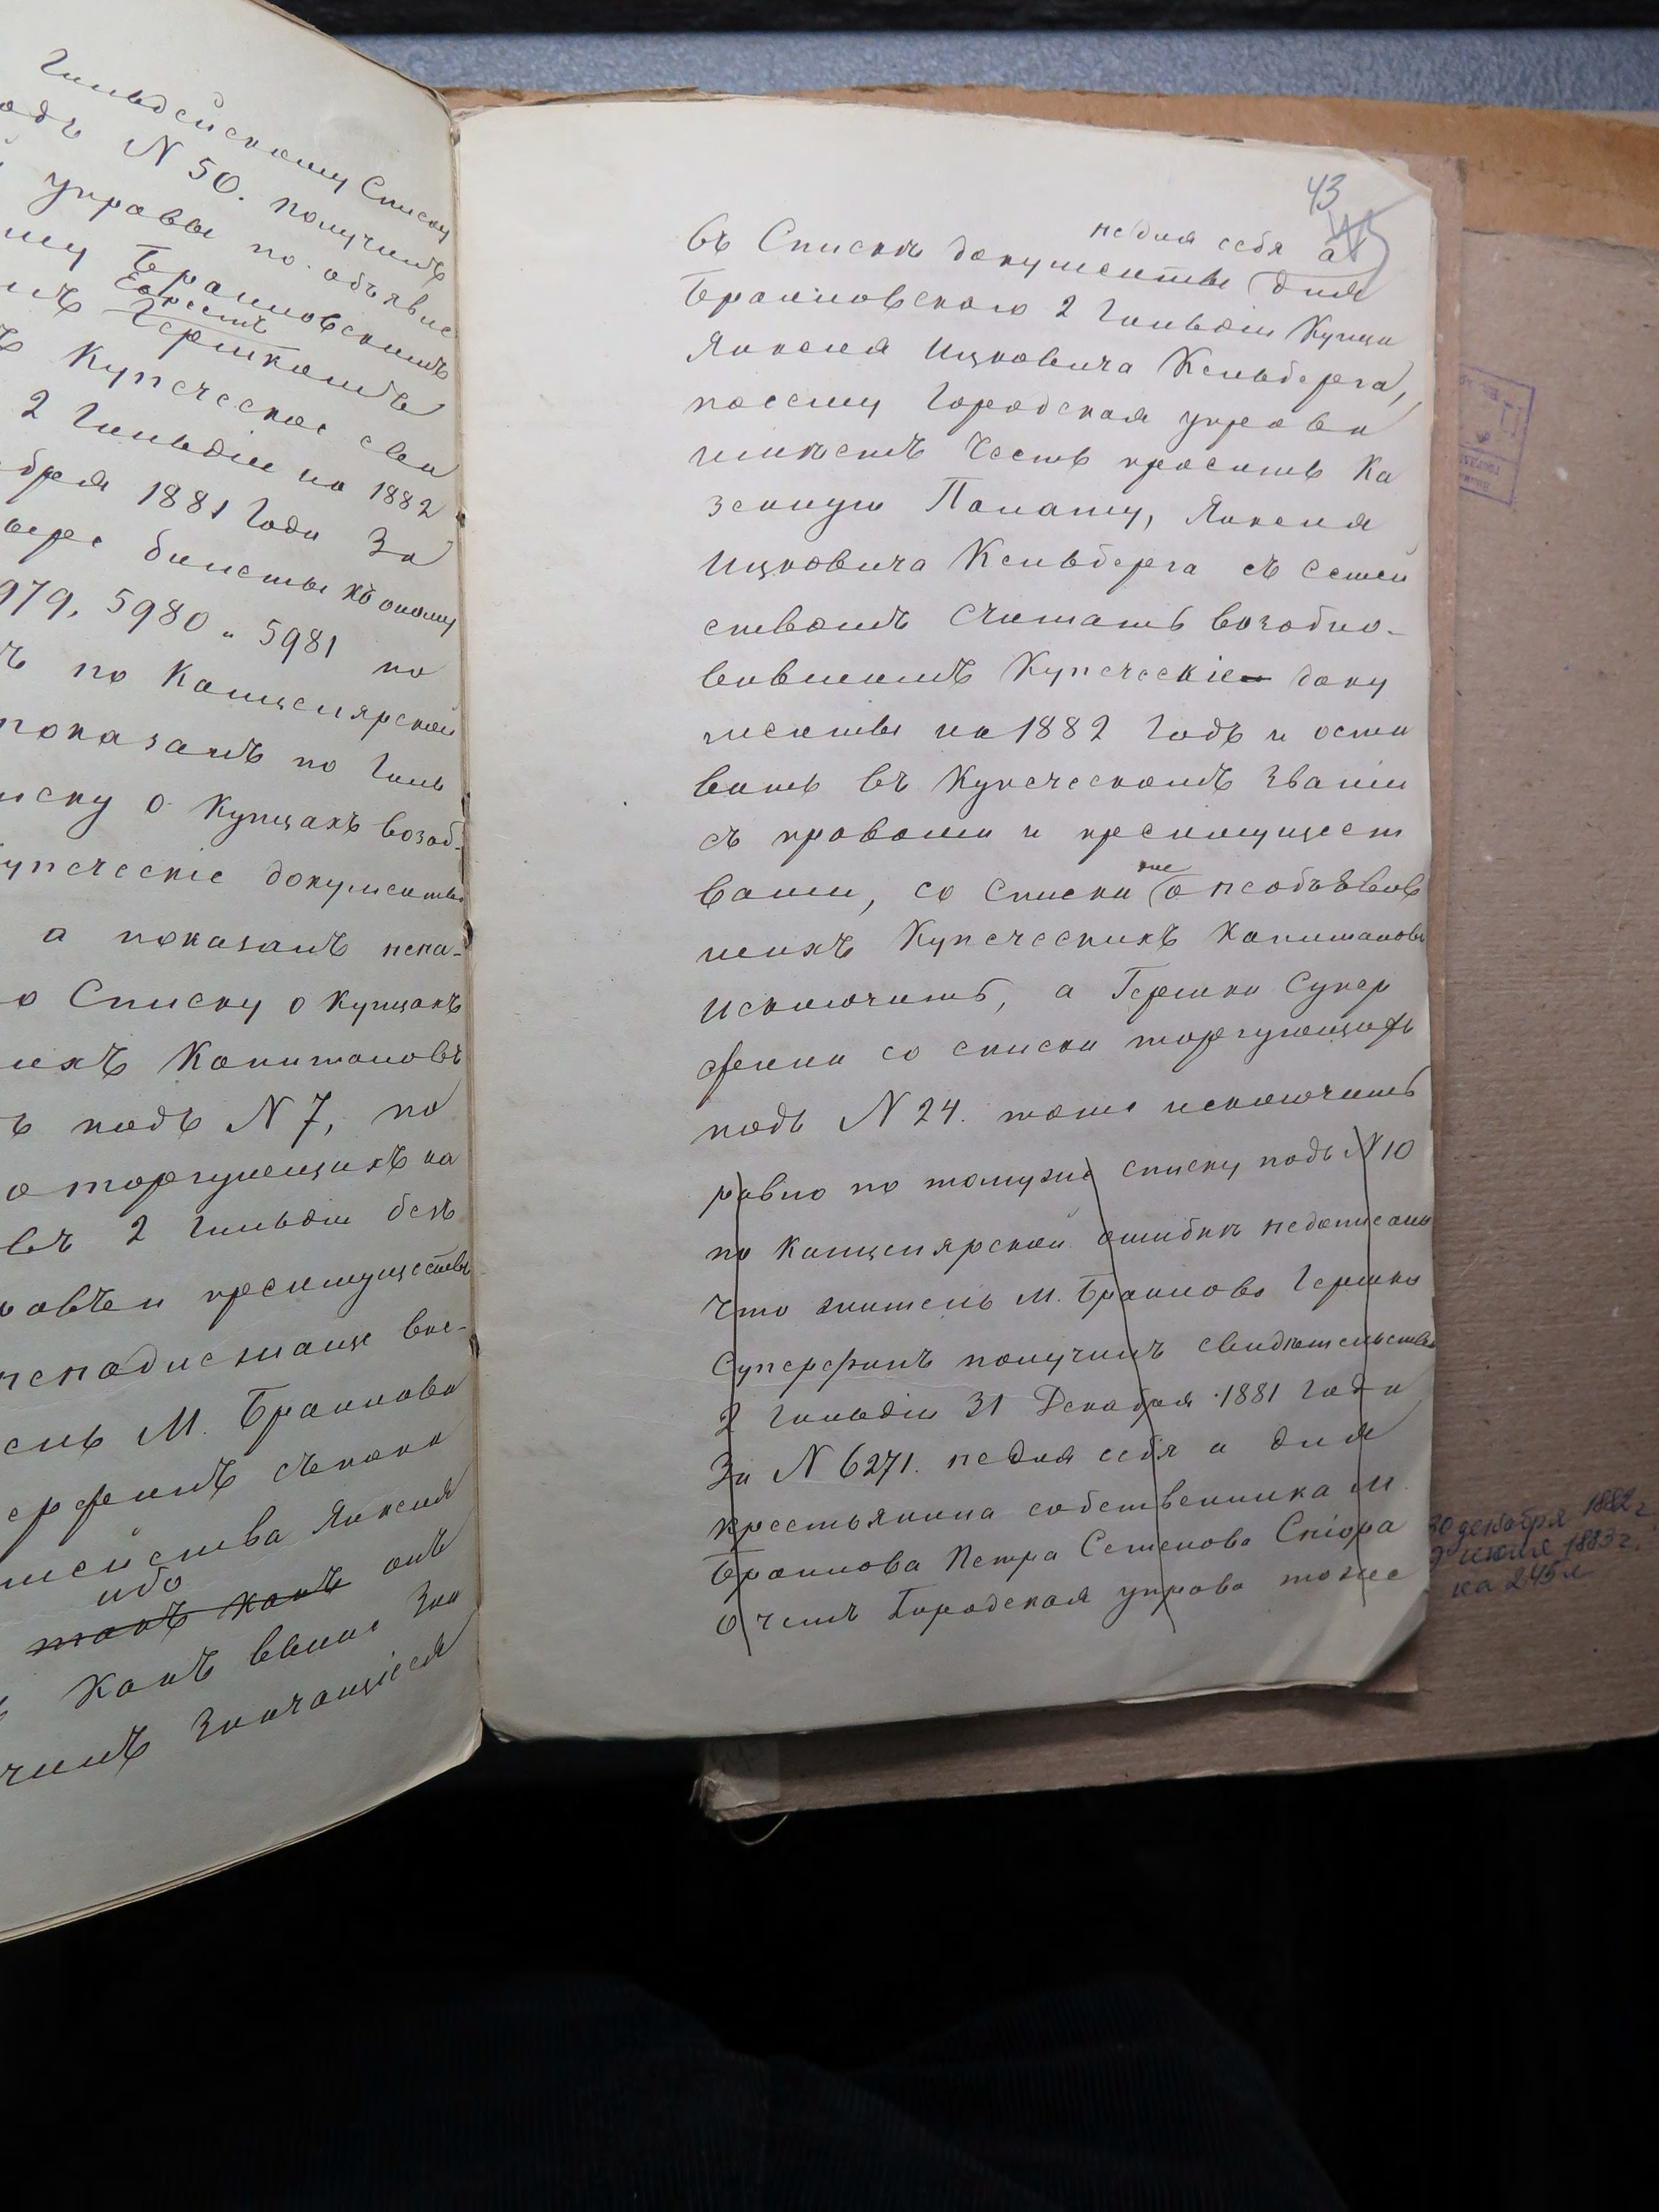 Гильдейскому Списку
одъ N 50. получилъ
управы по объявле
му Браиловскимъ
Ескесемъ
Гершкомъ
Купеческое сви
2 Гильдіи на 1882
бря 1881 Года За
билеты къ оному
979, 5980 и 5981 по
по Канцелярской
показанъ по Гиль
иску о Купцахъ возоб-
упеческіе документы
а показанъ непа-
о Списку о купцахъ
ихъ Капиталовъ
ъ подъ N 7, по
о торгующихъ на
въ 2 Гильдіи безъ
преимуществъ
неподлежаще вне-
ель М. Браилова
ерфеинъ
мейства Янкеля
ибо
такъ какъ онъ
какъ выше Зна
чилъ Значащіеся
43
не для себя а
въ Спискѣ документы для
Браиловского 2 Гильдіи Купца
Янкеля Ицковича Кельберга,
посему Городская управа
имѣетъ Честь просить Ка
зенную Палату, Янкеля
Ицковича Кельберга съ Семей
ствомъ Считать возобно-
вившимъ Купеческіе доку
менты на 1882 Годъ и оста
вить въ Купеческомъ Званіи
съ правами и преимущест
вами, со Списка же о необъявив
шихъ Купеческихъ Капиталовъ
исключить, а Гершка Супер
феина со списка торгующихъ
подъ N 24. тоже исключить
равно по томуже списку подъ N 10
по Канцелярской ошибкѣ недописано
Что житель М. Браилова Гершко
Суперфинъ получилъ свидѣтельство
2 Гильдіи 31 Декабря 1881 года
За N 6271. не для себя а для
крестьянина собственника М.
Браилова Петра Семенова Спіора
О чемъ Городская управа тоже
30 декабря 1882 г.
июля 1883 г.
на 245 л